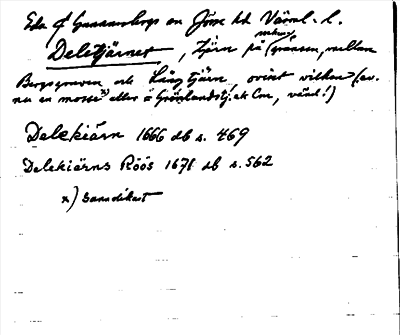 Eda g Gunnarsbergs on Jösse hd Värml. l.
Deletjärnet, tjärn på (gränsen, mellan
socken
Bergsgraven och Lång tjärn, ovisst vilken (ev.
nu en mosse x) eller ä Grönlandstj. ek Cm, vänd!)
Delekiärn 1666 db s. 469
Delekiärns Röös 1671 db s. 562
x) sannolikast